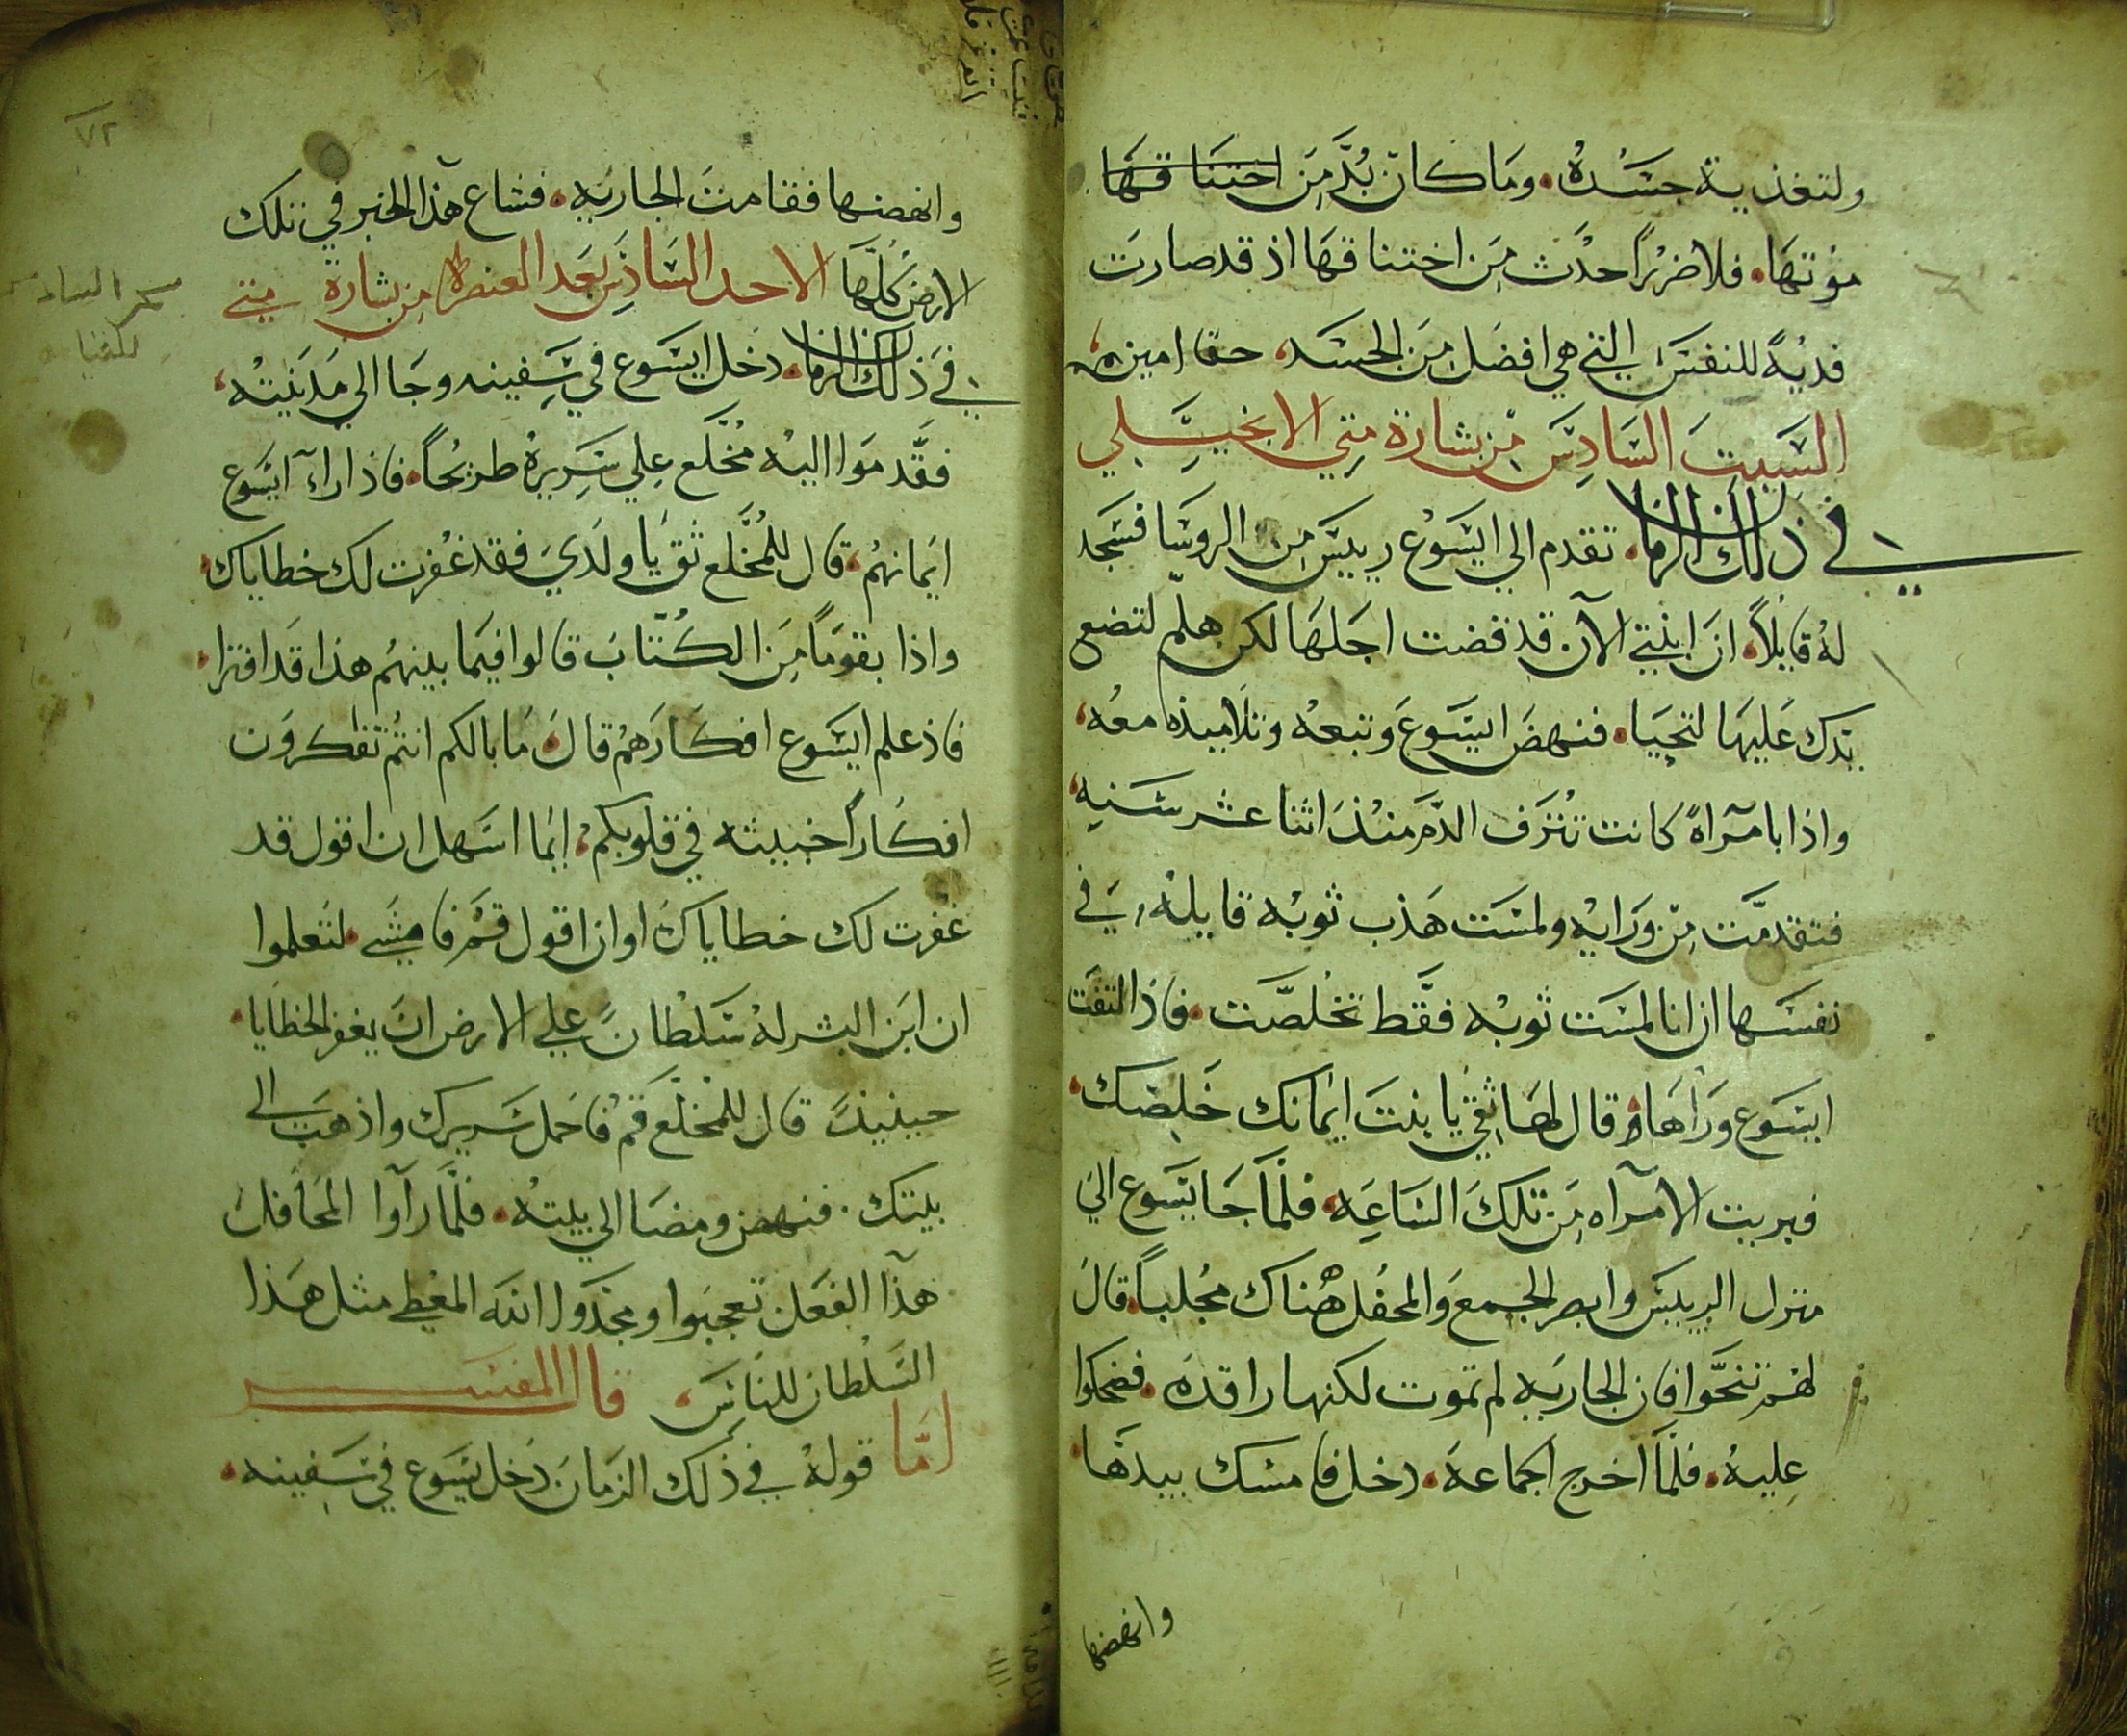 ولتغذية جسَدهُ. ومَا كان بُدَّ مِن اختنَا قهَا
مؤتهَا. فلا ضررًا حدَث مِن اختنا قهَا اذ قد صارَت
فديةً للنفسَ التي هي افضل مِن الجسَد، حقا امين
السَبتَ السَادِسَ مِن بشارة متي الانجيَلي
في ذلك الزمان. تقدم الي ايسَوْع رييسَ مِن الروسَا فسَجد
لهُ قايلاً. ان ابنتي الآن قد قضت اجلهَا لكن هلمّ لتضع
يدك عَليهَا لتحيَا. فنهضَ ايسَوعَ وتبعهْ وتلاميذه معُه،
واذا بامرَاهً كانت تُنزَف الدمَ منْذ اثنا عشر سَنيه
فتقدمَّت مِن وَرَايهْ ولمسَت هَذب ثوبهْ قايلهْ، في
نفسَها ان انا لمسَت ثوبهْ فقَّط تخْلصَّت. فاذ التفَت
ايسَوع ورَاهَا وقال لهَا ثِقي يَا بنتَ ايمانك خَلِصَك
فبريت الامرآه مِن تلكَ السَاعِه. فلمَّا جَا يسَوع الي
منزل الرييسَ وابصر الجمعَ والمحفُل هُناك مجُلباً. قال
لهَم تنحَّوا فان الجاريَه لم تموت لكنها راقدَه. فضحكوا
عليهُ. فلمَّا اخرج الجماعهَ. دخل فامسَك بيدهَا
وانهضها
٧٢
وانهضها فقامتَ الجاريَه. فشاع هذا الخبر في تلك
الارض كُلهَا الاحد السَادسَ بَعد العنصرة مِن بشارة متي
في ذلك الزمان. دخل ايسَوع في سَفينه وجَا الي مَدينتهْ،
فقَّدموَا اليهْ مُخَلَّع علي سَريرهْ طريحًا. فاذ ارآ ايسَوع
ايمانهُم، قال للمُخَلع ثقْ يَا ولَديَ فقد غفرت لك خطاياك
واذا بقومًا مَن الكُتابَ قالوا فيمَا بينهُم هذا قَد افترا.
فاذ علم ايسَوع افكارَهمُ قالَ، مَا بالكم انتُم تفكروَن
افكاراً خبيثه في قلوبكم، ايمَا اسَهل ان اقول قد
غفرت لك خطاياكَ، او ان اقول قمْ فامشَي. لتَعلموا
ان ابَن البشر لهْ سَلطانً علي الارض انَ يغفر الخطايا.
حينيذً قال للمخلَّع قمْ فاحَمل سَريرك واذهَب الي
بيتك. فنهض ومضَا الي بيتهْ. فلمَّا رآوا المحَافلَ
هذآ الفعَل تعجبوا ومجدَوا الله المعْطي مثل هَذا
السَلْطان للنَاسَ، قال المفسَر
امَّا قولهْ في ذلك الزمَانَ دَخل يسَوع في سَفينه.